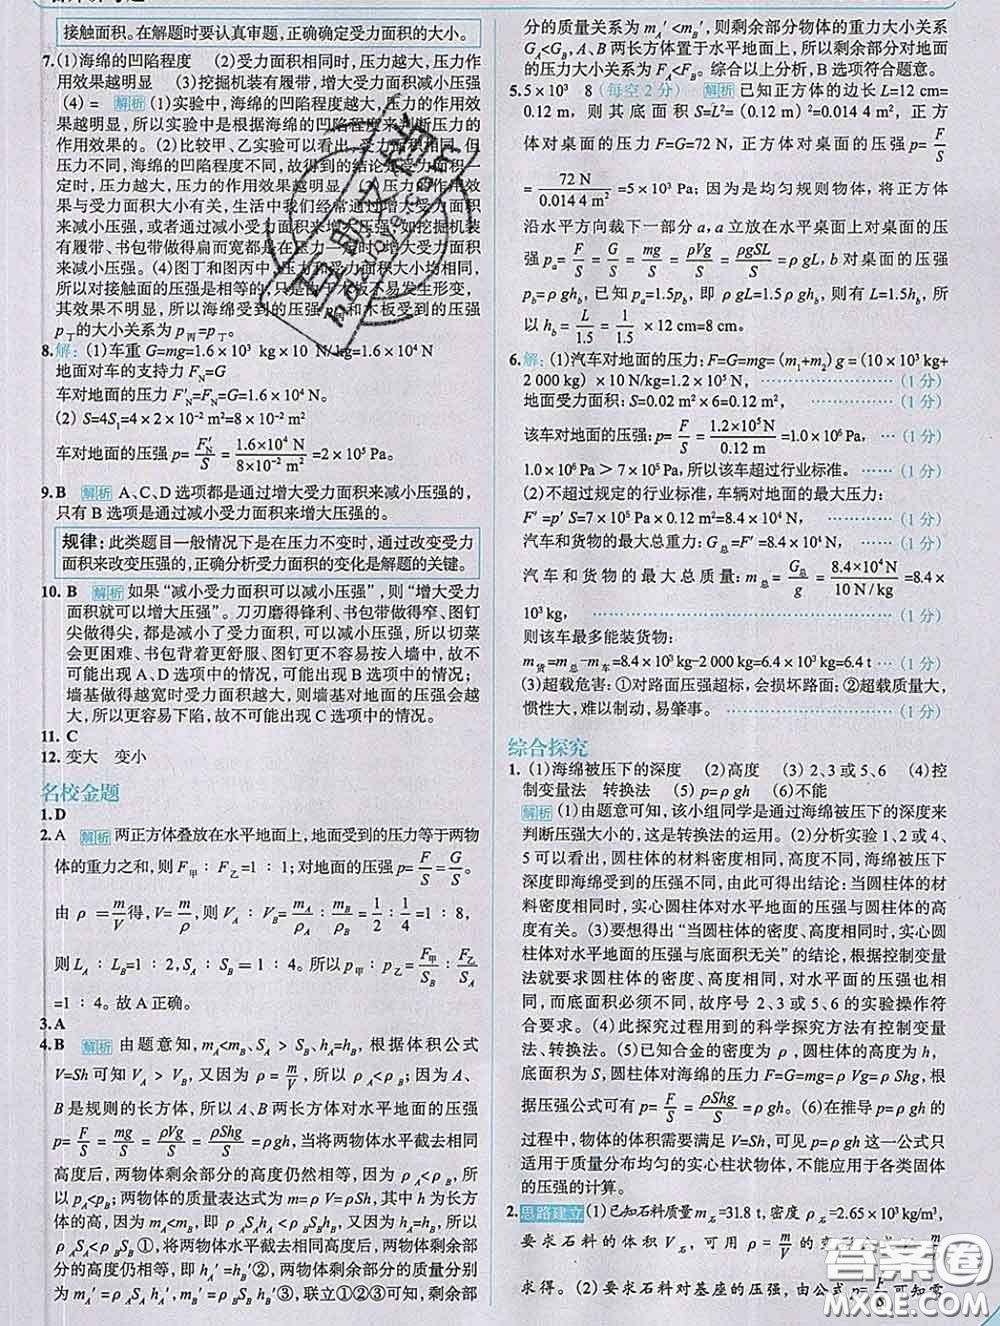 接触面积。在解题时要认真审题,正确确定受力面积的大小。
7.(1)海绵的凹陷程度 (2)受力面积相同时,压力越大,压力作
用效果越明显 (3)挖掘机装有履带,增大受力面积减小压强
(4)= 解析 (1)实验中,海绵的凹陷程度越大,压力的作用效
果越明显,所以实验中是根据海绵的凹陷程度来判断压力的
作用效果的。(2)比较甲、乙实验可以看出,受力面积相同,但
压力不同,海绵的凹陷程度不同,故得到的结论是受力面积一
定时,压力越大,压力的作用效果越明显。(3)
与受力面积大小有关,生活中我们经常通过增大受力面积
来减小压强,或者通过减小受力面积来增大压强,如挖掘机装
有履带、书包带做得扁而宽都是在压力一定时,增大受力面积
来减小压强。(4)图丁和图丙中,压力和受力面积大小均相同,
所以对接触面的压强是相等的,只是由于木板不易发生形变,
其效果不明显,所以海绵受到的压强p丙和木板受到的压强
p丁的大小关系为 p丙=p丁。
8.解:(1)车重 G=mg=1.6×10³ kg×10 N/kg=1.6×10⁴ N
地面对车的支持力 F_N=G
车对地面的压力 F′_N=F_N=G=1.6×10⁴ N。
(2) S=4S₁=4×2×10⁻² m²=8×10⁻² m²
车对地面的压强p=F′_N/S=1.6×10⁴ N/8×10⁻² m²=2×10⁵ Pa。
9. B 解析 A、C、D选项都是通过增大受力面积来减小压强的,
只有B选项是通过减小受力面积来增大压强的。
规律:此类题目一般情况下是在压力不变时,通过改变受力
面积来改变压强的,正确分析受力面积的变化是解题的关键。
10. B 解析 如果“减小受力面积可以减小压强”,则“增大受力
面积就可以增大压强”。刀刃磨得锋利、书包带做得窄、图钉
尖做得尖,都是减小了受力面积,可以减小压强,所以切菜
会更困难、书包背着更舒服、图钉更不容易按入墙中,故不
可能出现A、D选项中的情况,可能出现B选项中的情况;
墙基做得越宽时受力面积越大,则墙基对地面的压强会越
大,所以更容易下陷,故不可能出现C选项中的情况。
11. C
12. 变大 变小
名校金题
1.D
2.A 解析 两正方体叠放在水平地面上,地面受到的压力等于两物
体的重力之和,则 F甲∶F乙=1∶1;对地面的压强p=F/S=G/S。
由ρ=m/V得,V=m/ρ,则V_A∶V_B=m_A/ρ_A∶m_B/ρ_B=1/2∶4/1=1∶8,
则L_A∶L_B=1∶2,S_A∶S_B=1∶4。所以p甲∶p乙=F甲/S_B∶F乙/S_A
=1∶4。故A正确。
3.A
4.B 解析 由题意知,m_A<m_B、S_A>S_B、h_A=h_B,根据体积公式
V=Sh可知V_A>V_B,又因为ρ=m/V,所以ρ_A<ρ_B;因为A、
B是规则的长方体,所以A、B两长方体对水平地面的压强
p=F/S=mg/S=ρVg/S=ρShg/S=ρgh,当将两物体水平截去相同
高度后,两物体剩余部分的高度仍然相等,因为ρ_A<ρ_B,所
以p_A<p_B;两物体的质量表达式为m=ρV=ρSh,其中h为长方
体的高,因为m_A<m_B,即ρ_A S_A h_A<ρ_B S_B h_B,又因为h_A=h_B,所以
ρ_A S_A<ρ_B S_B①,将两物体水平截去相同高度后,两物体剩余部
分的高度仍相等,即h_A′=h_B′②,两物体剩余部分的质量分别
为m_A′=ρ_A S_A h_A′,m_B′=ρ_B S_B h_B′③,联立①②③可知,剩余部
分的质量关系为m_A′<m_B′,则剩余部分物体的重力大小关系
G_A<G_B,A、B两长方体置于水平地面上,所以剩余部分对地面
的压力大小关系为F_A<F_B。综合以上分析,B选项符合题意。
5. 5×10³ 8(每空2分) 解析 已知正方体的边长L=12 cm=
0.12 m,则其底面积S=L²=(0.12 m)²=0.014 4 m²,正方
体对桌面的压力F=G=72 N,正方体对桌面的压强p=F/S
=72 N/0.014 4 m²=5×10³ Pa;因为是均匀规则物体,将正方体
沿水平方向截下一部分a,a立放在水平桌面上对桌面的压
强p_a=F/S=G/S=mg/S=ρVg/S=ρgSL/S=ρgL,b对桌面的压强
p_b=ρgh_b,已知p_a=1.5p_b,即ρgL=1.5ρgh_b,则有L=1.5h_b,所
以h_b=L/1.5=1/1.5×12 cm=8 cm。
6.解:(1)汽车对地面的压力:F=G=mg=(m₁+m₂)g=(10×10³ kg+
2 000 kg)×10 N/kg=1.2×10⁵ N,……………………(1分)
地面受力面积:S=0.02 m²×6=0.12 m²,…………(1分)
该车对地面的压强:p=F/S=1.2×10⁵ N/0.12 m²=1.0×10⁶ Pa,…(1分)
1.0×10⁶ Pa>7×10⁵ Pa,所以该车超过行业标准。…(1分)
(2)不超过规定的行业标准,车辆对地面的最大压力:
F′=p′S=7×10⁵ Pa×0.12 m²=8.4×10⁴ N,…………(1分)
汽车和货物的最大总重力:G总=F′=8.4×10⁴ N,……(1分)
汽车和货物的最大总质量:m总=G总/g=8.4×10⁴ N/10 N/kg=8.4×
10³ kg,……………………(1分)
则该车最多能装货物:
m货=m总-m车=8.4×10³ kg-2 000 kg=6.4×10³ kg=6.4 t…(1分)
(3)超载危害:①对路面压强超标,会损坏路面;②超载质量大,
惯性大,难以制动,易肇事。……………………(1分)
综合探究
1.(1)海绵被压下的深度 (2)高度 (3)2、3或5、6 (4)控
制变量法 转换法 (5)ρgh (6)不能
解析 (1)由题意可知,该小组同学是通过海绵被压下的深度来
判断压强大小的,这是转换法的运用。(2)分析实验1、2或4、
5可以看出,圆柱体的材料密度相同,高度不同,海绵被压下
深度即海绵受到的压强不同,由此可得出结论:当圆柱体的材料
密度相同时,实心圆柱体对水平地面的压强与圆柱体的高
度有关。(3)要想得出“当圆柱体的密度、高度相同时,实心圆
柱体对水平地面的压强与底面积无关”的结论,根据控制变量
法就要求圆柱体的密度、高度相同,对水平面的压强也相
同,而底面积必须不同,故序号2、3或5、6的实验操作符
合要求。(4)此探究过程用到的科学探究方法有控制变量
法、转换法。(5)已知合金的密度为ρ,圆柱体的高度为h,
底面积为S,则圆柱体对海绵的压力F=G=mg=ρVg=ρShg,根
据压强公式可有p=F/S=ρShg/S=ρgh。(6)在推导p=ρgh的
过程中,物体的体积需要满足V=Sh,可见p=ρgh这一公式只
适用于质量分布均匀的实心柱状物体,不能应用于各类固体
的压强的计算。
2. 思路建立 (1)已知石料质量m石=31.8 t,密度ρ石=2.65×10³ kg/m³,
要求石料的体积V石,可用ρ=m/V的变
求得。(2)要求石料对基座的压强,由公式p=F/S可知需
答案圈
MXQE.COM